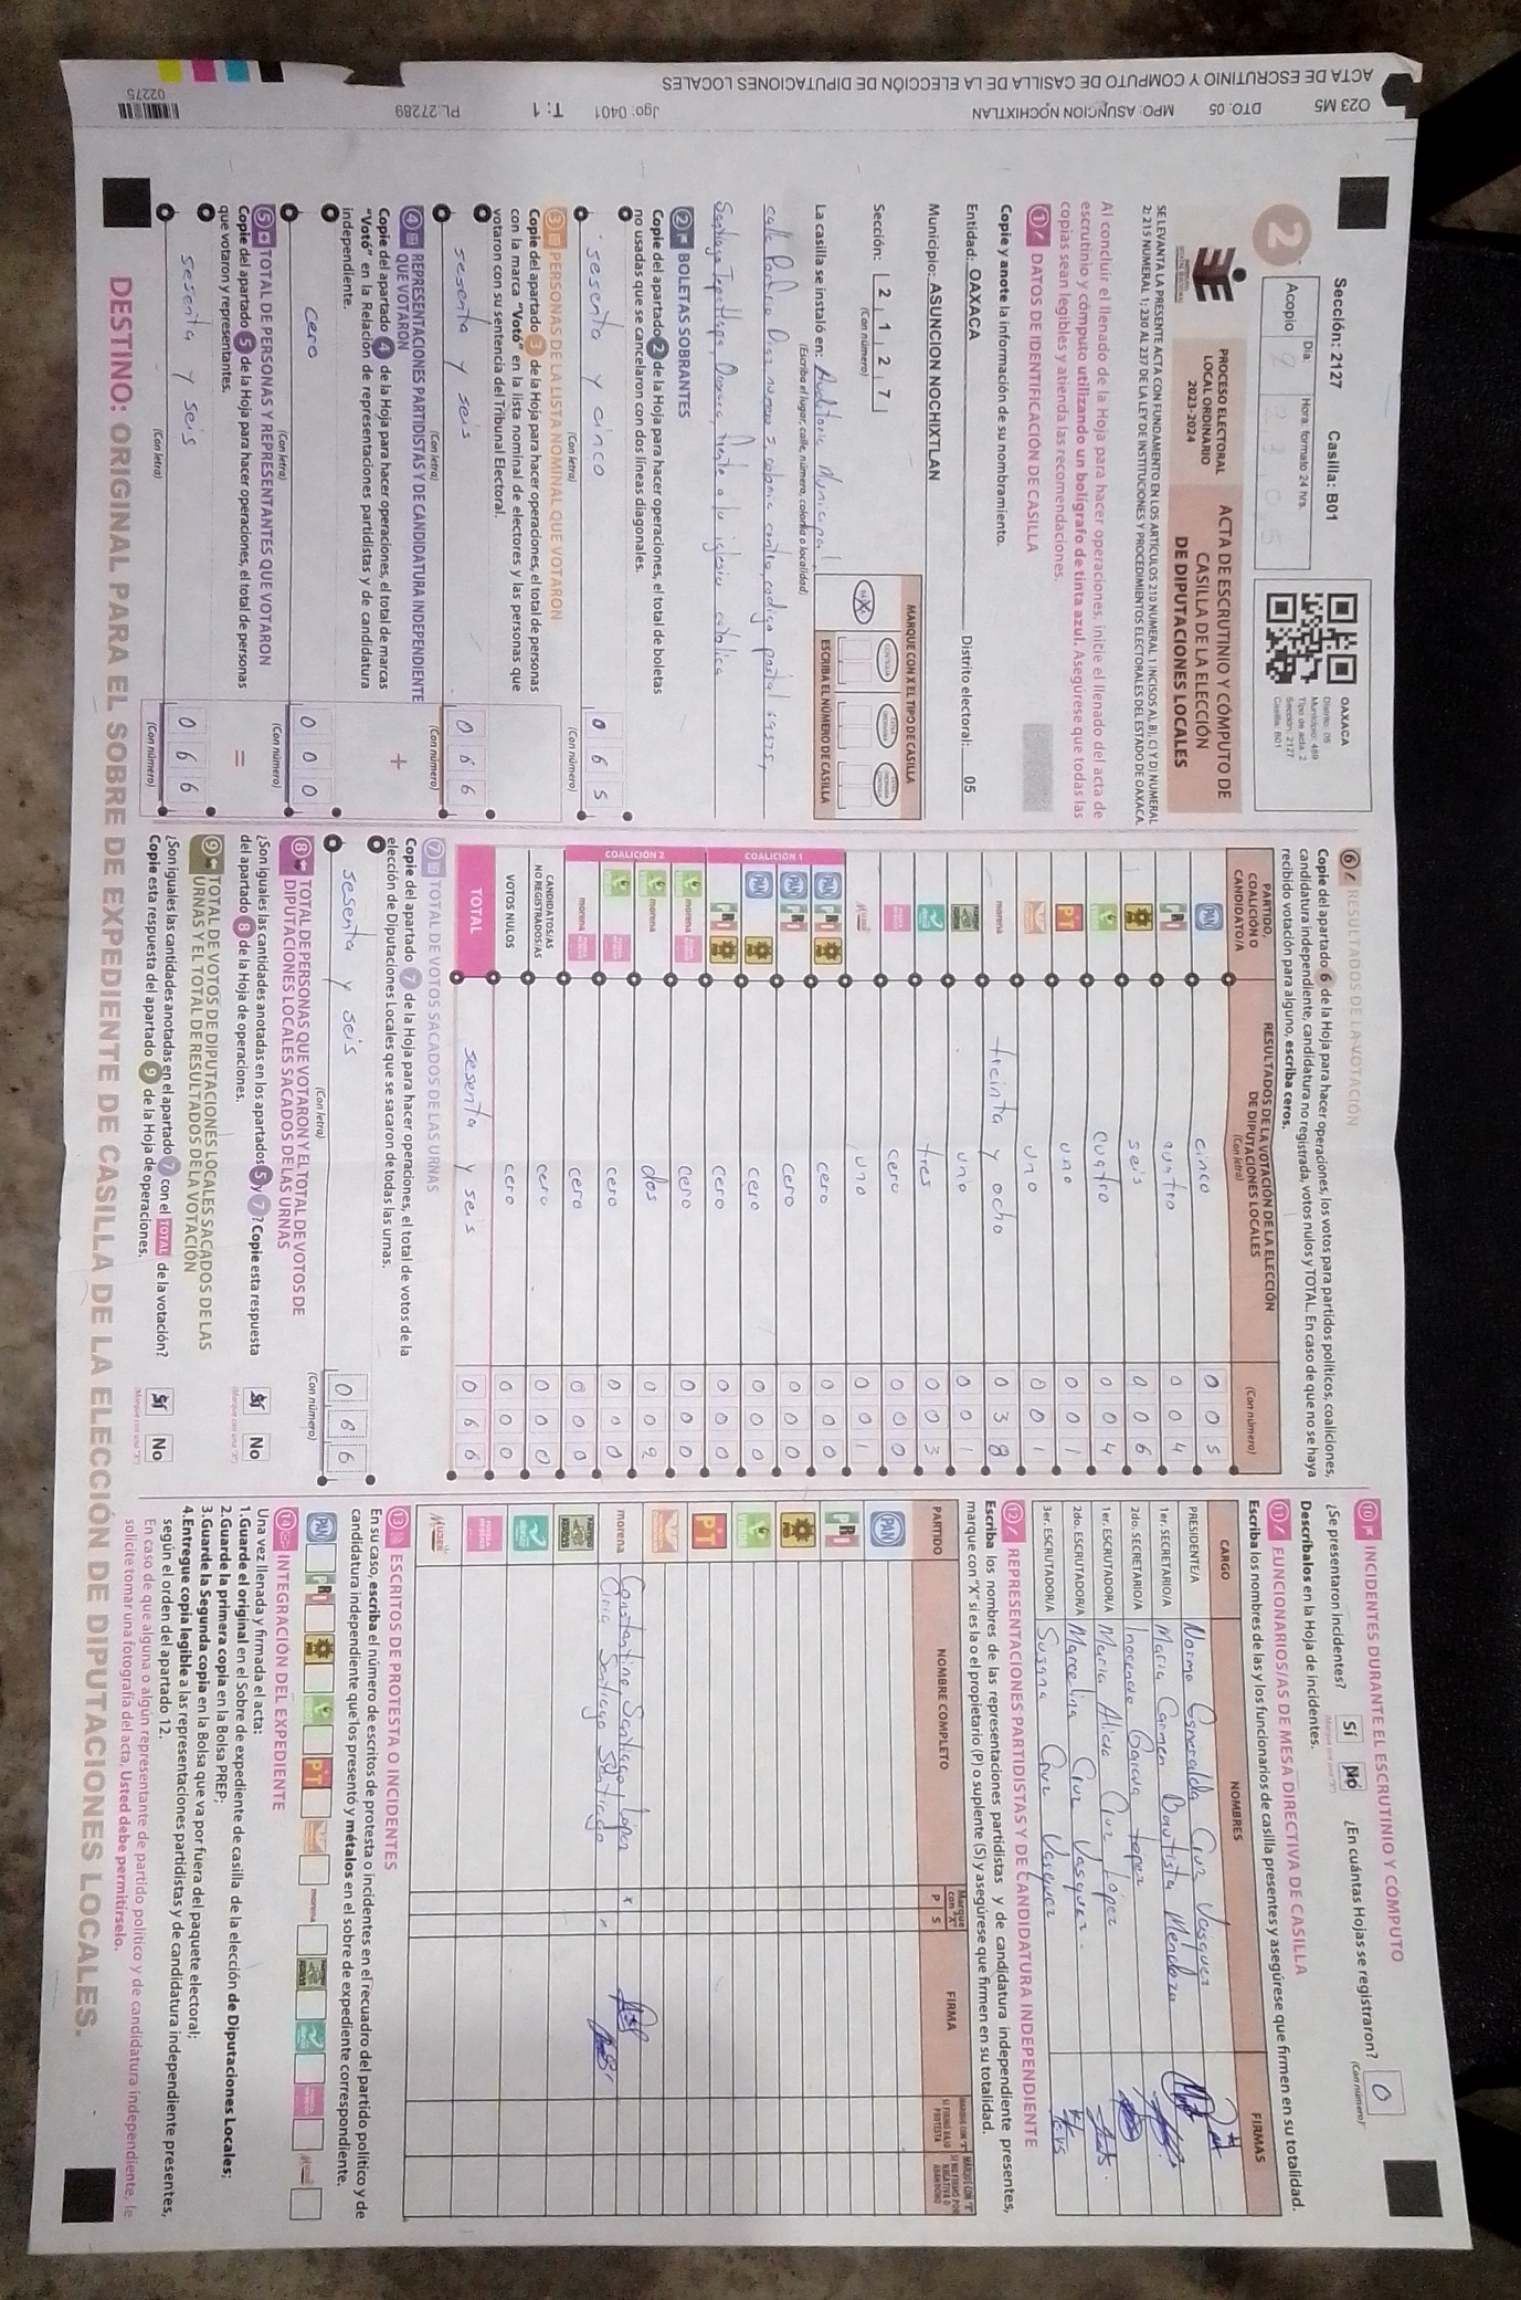 ACTA DE ESCRUTINIO Y COMPUTO DE CASILLA DE LA ELECCIÓN DE DIPUTACIONES LOCALES
O23 M5 DTO: 05 MPO: ASUNCION NOCHIXTLAN Jgo: 0401 T: 1 PL:27289
02275
Sección: 2127 Casilla: B01
2
Acopio
Día:
Hora: formato 24 hrs.
OAXACA
Distrito: 05
Municipio: 489
Tipo de acta: 2
Sección: 2127
Casilla: B01
PROCESO ELECTORAL
LOCAL ORDINARIO
2023-2024
ACTA DE ESCRUTINIO Y CÓMPUTO DE
CASILLA DE LA ELECCIÓN
DE DIPUTACIONES LOCALES
SE LEVANTA LA PRESENTE ACTA CON FUNDAMENTO EN LOS ARTÍCULOS 210 NUMERAL 1 INCISOS A), B), C) Y D) NUMERAL
2; 215 NUMERAL 1; 230 AL 237 DE LA LEY DE INSTITUCIONES Y PROCEDIMIENTOS ELECTORALES DEL ESTADO DE OAXACA.
Al concluir el llenado de la Hoja para hacer operaciones, inicie el llenado del acta de
escrutinio y cómputo utilizando un bolígrafo de tinta azul. Asegúrese que todas las
copias sean legibles y atienda las recomendaciones.
1 DATOS DE IDENTIFICACIÓN DE CASILLA
Copie y anote la información de su nombramiento.
Entidad: OAXACA Distrito electoral: 05
Municipio: ASUNCION NOCHIXTLAN
Sección: 2 1 2 7
(Con número)
MARQUE CON X EL TIPO DE CASILLA
ESCRIBA EL NÚMERO DE CASILLA
La casilla se instaló en: Auditorio Municipal
(Escriba el lugar, calle, número, colonia o localidad)
calle Porfirio Diaz numero 5, colonia centro, codigo postal 69575,
Santiago Tepetlapa, Oaxaca, frente a la iglesia catolica
2 BOLETAS SOBRANTES
Copie del apartado 2 de la Hoja para hacer operaciones, el total de boletas
no usadas que se cancelaron con dos líneas diagonales.
sesenta y cinco 0 6 5
(Con letra) (Con número)
3 PERSONAS DE LA LISTA NOMINAL QUE VOTARON
Copie del apartado 3 de la Hoja para hacer operaciones, el total de personas
con la marca "Votó" en la lista nominal de electores y las personas que
votaron con su sentencia del Tribunal Electoral.
sesenta y seis 0 6 6
(Con letra) (Con número)
4 REPRESENTACIONES PARTIDISTAS Y DE CANDIDATURA INDEPENDIENTE
QUE VOTARON
+
Copie del apartado 4 de la Hoja para hacer operaciones, el total de marcas
"Votó" en la Relación de representaciones partidistas y de candidatura
independiente.
cero 0 0 0
(Con letra) (Con número)
5 TOTAL DE PERSONAS Y REPRESENTANTES QUE VOTARON
=
Copie del apartado 5 de la Hoja para hacer operaciones, el total de personas
que votaron y representantes.
sesenta y seis 0 6 6
(Con letra) (Con número)
6 RESULTADOS DE LA VOTACIÓN
Copie del apartado 6 de la Hoja para hacer operaciones, los votos para partidos políticos, coaliciones,
candidatura independiente, candidatura no registrada, votos nulos y TOTAL. En caso de que no se haya
recibido votación para alguno, escriba ceros.
PARTIDO, COALICIÓN O CANDIDATO/A
RESULTADOS DE LA VOTACIÓN DE LA ELECCIÓN DE DIPUTACIONES LOCALES
(Con letra) (Con número)
PAN cinco 0 0 5
PRI cuatro 0 0 4
PRD seis 0 0 6
VERDE cuatro 0 0 4
PT uno 0 0 1
uno 0 0 1
morena treinta y ocho 0 3 8
uno 0 0 1
tres 0 0 3
cero 0 0 0
uno 0 0 1
COALICIÓN 1
PAN PRI PRD cero 0 0 0
PAN PRI cero 0 0 0
PAN PRD cero 0 0 0
PRI PRD cero 0 0 0
COALICIÓN 2
VERDE morena cero 0 0 0
VERDE morena dos 0 0 2
VERDE cero 0 0 0
morena cero 0 0 0
CANDIDATOS/AS NO REGISTRADOS/AS cero 0 0 0
VOTOS NULOS cero 0 0 0
TOTAL sesenta y seis 0 6 6
7 TOTAL DE VOTOS SACADOS DE LAS URNAS
Copie del apartado 7 de la Hoja para hacer operaciones, el total de votos de la
elección de Diputaciones Locales que se sacaron de todas las urnas.
sesenta y seis 0 6 6
(Con letra) (Con número)
8 TOTAL DE PERSONAS QUE VOTARON Y EL TOTAL DE VOTOS DE
DIPUTACIONES LOCALES SACADOS DE LAS URNAS
¿Son iguales las cantidades anotadas en los apartados 5 y 7? Copie esta respuesta
del apartado 8 de la Hoja de operaciones.
Sí No
9 TOTAL DE VOTOS DE DIPUTACIONES LOCALES SACADOS DE LAS
URNAS Y EL TOTAL DE RESULTADOS DE LA VOTACIÓN
¿Son iguales las cantidades anotadas en el apartado 7 con el TOTAL de la votación?
Copie esta respuesta del apartado 9 de la Hoja de operaciones.
Sí No
10 INCIDENTES DURANTE EL ESCRUTINIO Y CÓMPUTO
¿Se presentaron incidentes? Sí No ¿En cuántas Hojas se registraron? 0
(Con número)
Descríbalos en la Hoja de incidentes.
11 FUNCIONARIOS/AS DE MESA DIRECTIVA DE CASILLA
Escriba los nombres de las y los funcionarios de casilla presentes y asegúrese que firmen en su totalidad.
CARGO NOMBRES FIRMAS
PRESIDENTE/A Norma Esmeralda Cruz Vasquez
1er. SECRETARIO/A Maria Carmen Bautista Mendoza
2do. SECRETARIO/A Inocencio Garcia Lopez
1er. ESCRUTADOR/A Maria Alicia Cruz López
2do. ESCRUTADOR/A Marcelina Cruz Vasquez
3er. ESCRUTADOR/A Susana Cruz Vasquez
12 REPRESENTACIONES PARTIDISTAS Y DE CANDIDATURA INDEPENDIENTE
Escriba los nombres de las representaciones partidistas y de candidatura independiente presentes,
marque con "X" si es la o el propietario (P) o suplente (S) y asegúrese que firmen en su totalidad.
PARTIDO NOMBRE COMPLETO Marque con "X" P S FIRMA
PAN
PRI
PRD
VERDE
PT
morena Constantino Santiago Lopez x
Santiago Santiago
13 ESCRITOS DE PROTESTA O INCIDENTES
En su caso, escriba el número de escritos de protesta o incidentes en el recuadro del partido político y de
candidatura independiente que los presentó y métalos en el sobre de expediente correspondiente.
PAN PRI PRD VERDE PT morena
14 INTEGRACIÓN DEL EXPEDIENTE
Una vez llenada y firmada el acta:
1.Guarde el original en el Sobre de expediente de casilla de la elección de Diputaciones Locales;
2.Guarde la primera copia en la Bolsa PREP;
3.Guarde la Segunda copia en la Bolsa que va por fuera del paquete electoral;
4.Entregue copia legible a las representaciones partidistas y de candidatura independiente presentes,
según el orden del apartado 12.
En caso de que alguna o algún representante de partido político y de candidatura independiente, le
solicite tomar una fotografía del acta, Usted debe permitírselo.
DESTINO: ORIGINAL PARA EL SOBRE DE EXPEDIENTE DE CASILLA DE LA ELECCIÓN DE DIPUTACIONES LOCALES.